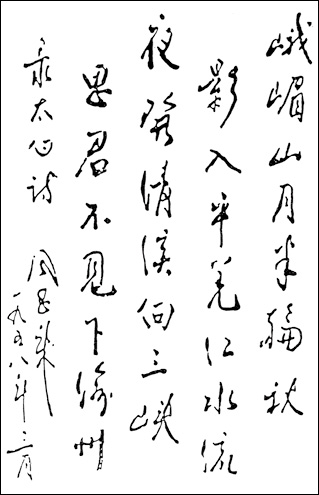 峨嵋山月半輪秋
影入平羌江水流
夜發清溪向三峽
思君不見下渝州
录太白詩 周恩来
一九五八年三月